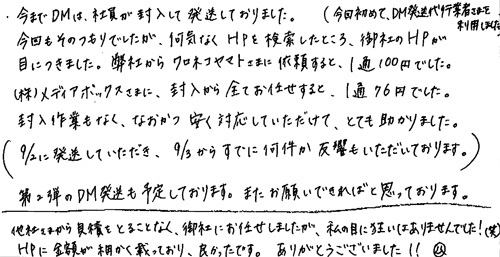 ・今までDMは、社員が封入して発送しておりました。(今回初めて、DM発送代行業者さまを利用しました
今回もそのつもりでしたが、何気なくHPを検索したところ、御社のHPが
目につきました。弊社からクロネコヤマトさまに依頼すると、1通100円でした。
(株)メディアボックスさまに、封入から全てお任せすると、1通76円でした。
封入作業もなく、なおかつ安く対応していただけて、とても助かりました。
(9/2に発送していただき、9/3からすでに何件か反響もいただいております。)
第2弾のDM発送も予定しております。またお願いできればと思っております。
他社さまから見積をとることなく、御社にお任せしましたが、私の目に狂いはありませんでした!(笑)
HPに金額が細かく載っており、良かったです。ありがとうございました!!